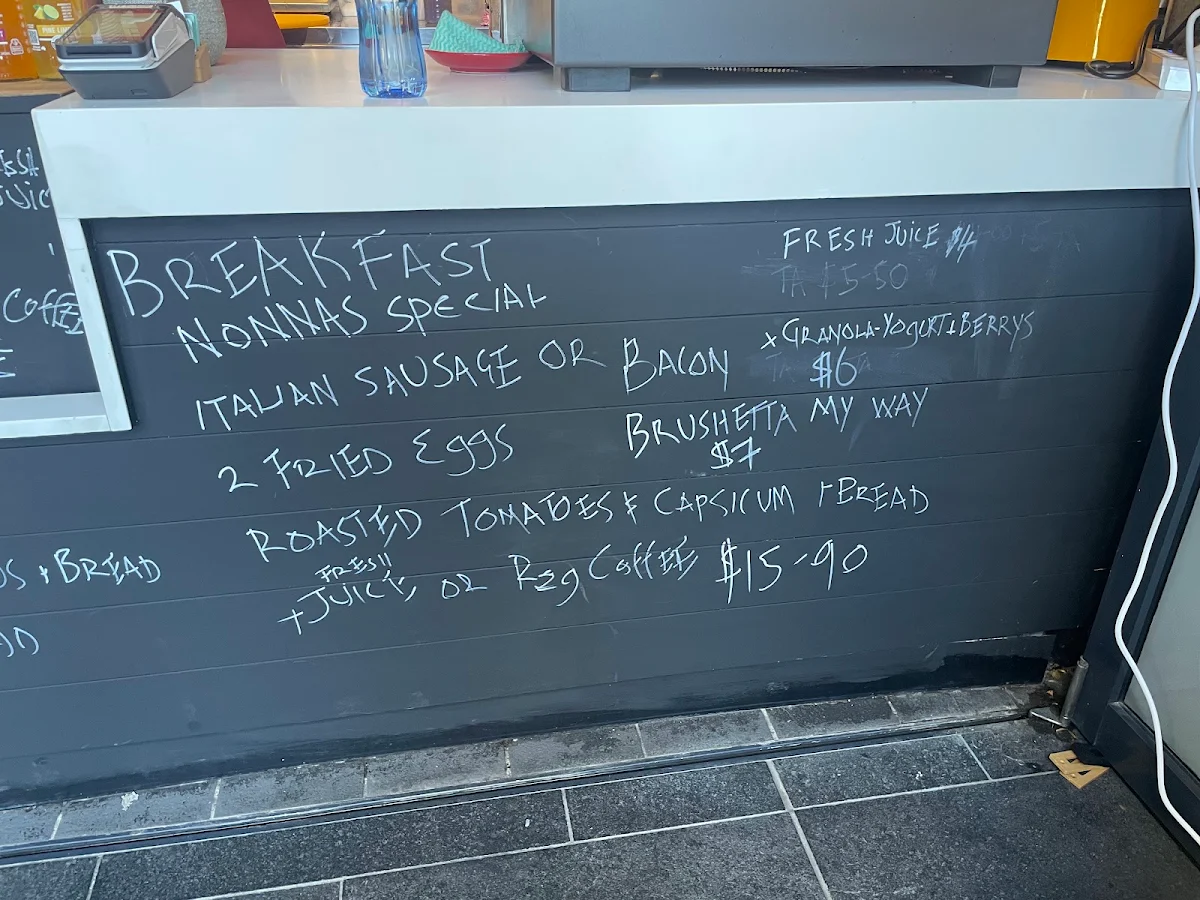 BREAKFAST
NONNAS SPECIAL
ITALIAN SAUSAGE OR BACON
2 FRIED EGGS
ROASTED TOMATOES & CAPSICUM + BREAD
FRESH
+ JUICE OR REg COFFEE $15-90
FRESH JUICE $4
TA $5-50
x GRANOLA-YOgURT + BERRYS
$6
BRUSHETTA MY WAY
$7
COffEE
+ BREAD